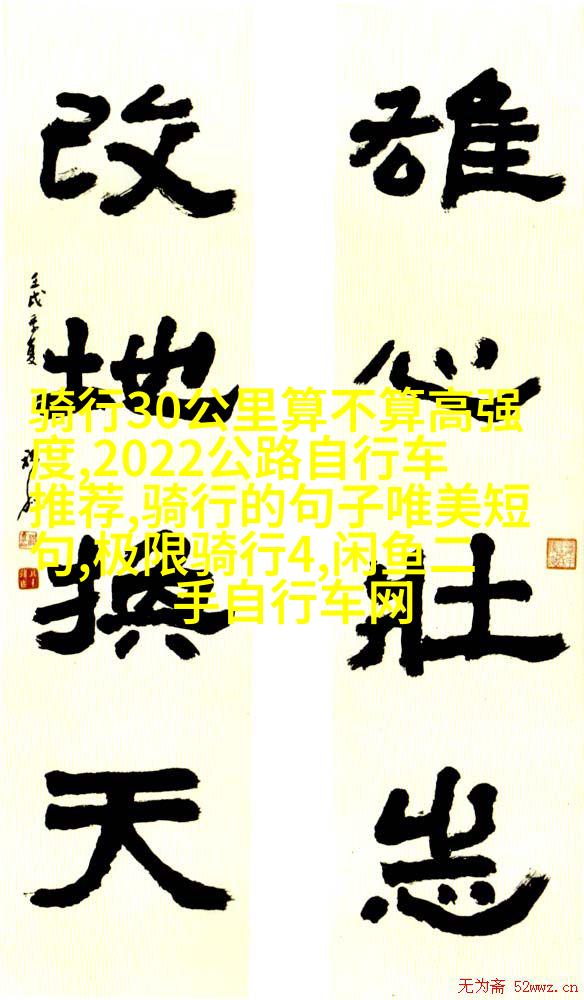 雄心壯志
改地换天
壬戌季夏
骑行30公里算不算高强
度,2022公路自行车
推荐,骑行的句子唯美短
句,极限骑行4,闲鱼二
手自行车网
无为斋 52wwz.cn